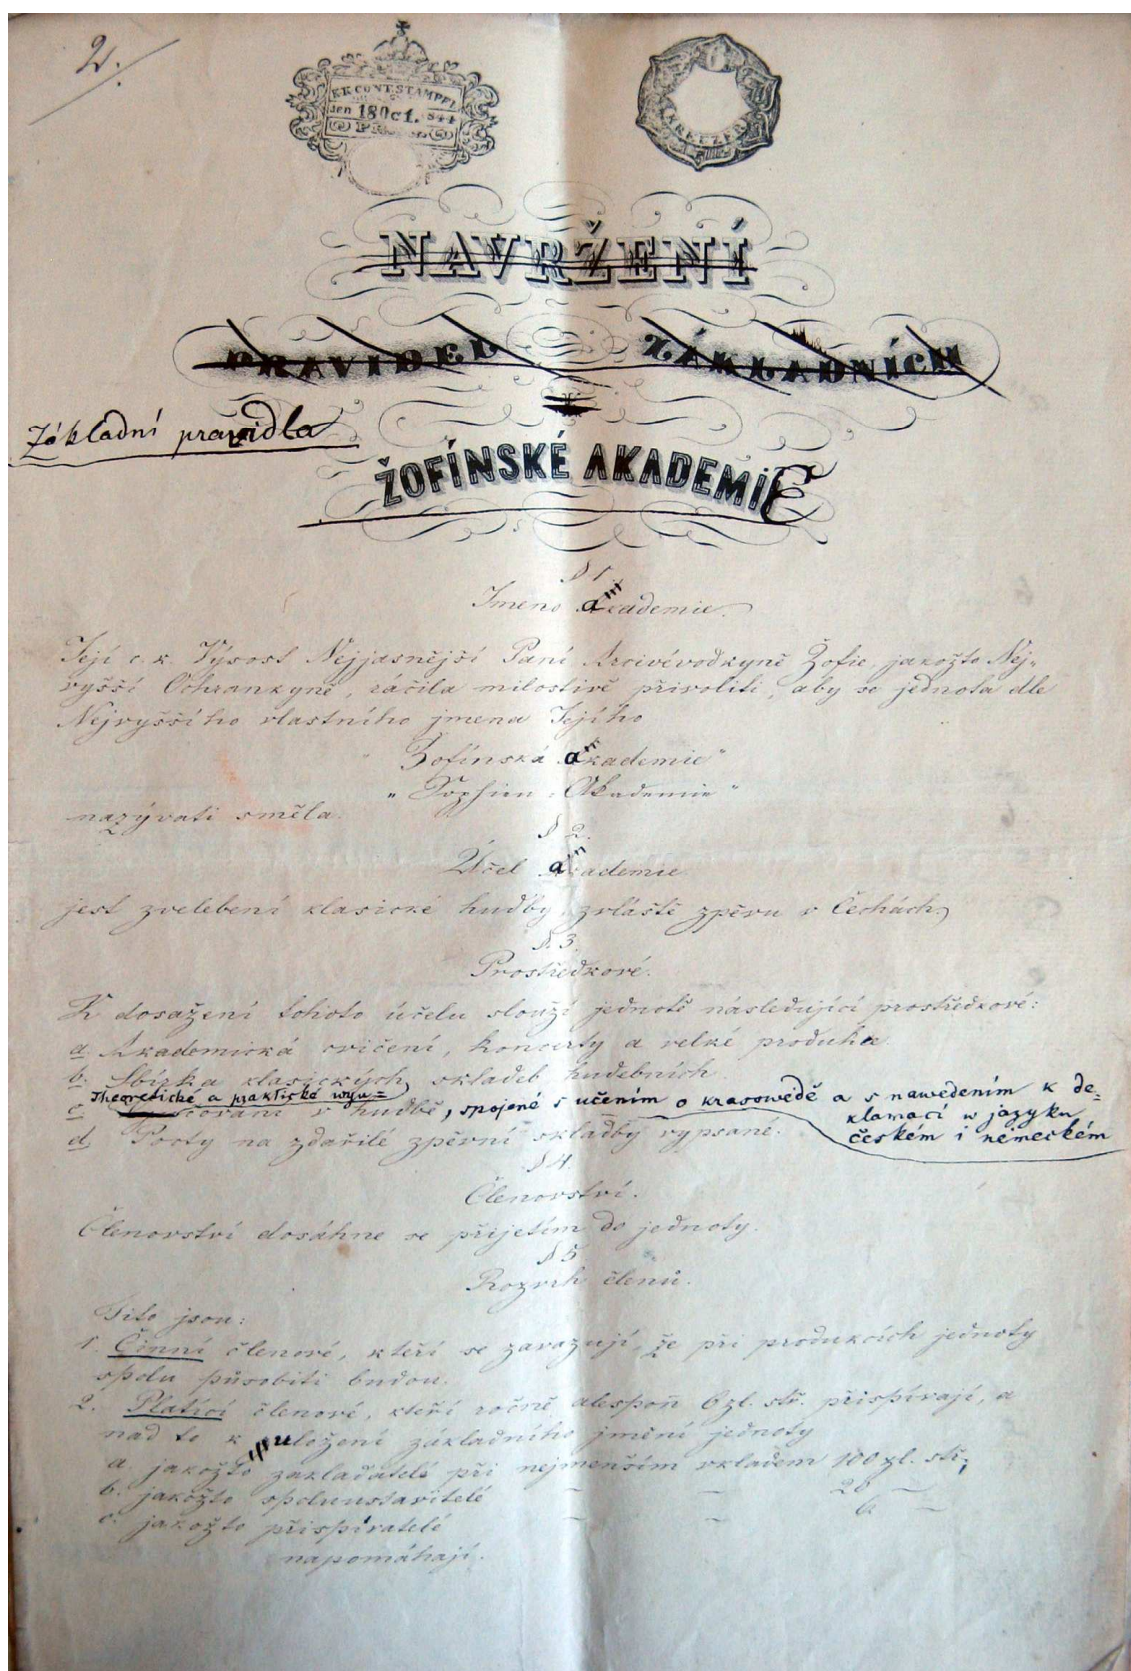 2.
NAVRŽENÍ
PRAVIDEL ZÁKLADNÍCH
Základní prawidla
ŽOFÍNSKÉ AKADEMIE
§ 1.
Jmeno akademie.
Její c. k. Výsost Nejjasnější Paní Arcivévodkyně Žofie, jakožto Nej-
vyšší Ochrankyně, ráčila milostivě přivoliti, aby se jednota dle
Nejvyššího vlastního jmena Jejího
"Žofínská akademie"
"Sophien-Akademie"
nazývati směla.
§ 2.
Účel akademie
jest zvelebení klasické hudby, zvláště zpěvu v Čechách.
§. 3.
Prostředkové.
K dosažení tohoto účelu slouží jednotě následující prostředkové:
a. Akademická cvičení, koncerty a velké produkce
b. Sbírka klasických skladeb hudebních.
Theoretické a praktické wyu=
c. čování v hudbě, spojené s učením o krasowědě a s nawedením k de=
klamací w jazyku
českém i německém
d. Pocty na zdařilé zpěvní skladby vypsané.
§ 4.
Členovství.
Členovství dosáhne se přijetím do jednoty.
§ 5.
Rozvrh členů.
Tito jsou:
1. Činní členové, kteří se zavazují, že při produkcích jednoty
spolu působiti budou.
2. Platící členové, kteří ročně alespoň 6 zl. stř. přispívají, a
nad to k uložení základního jmění jednoty
a. jakožto zakladatelé při nejmenším vkladem 100 zl. stř.
b. jakožto spoluustavitelé — — 20 —
c. jakožto přispívatelé — — 6 —
napomáhají.